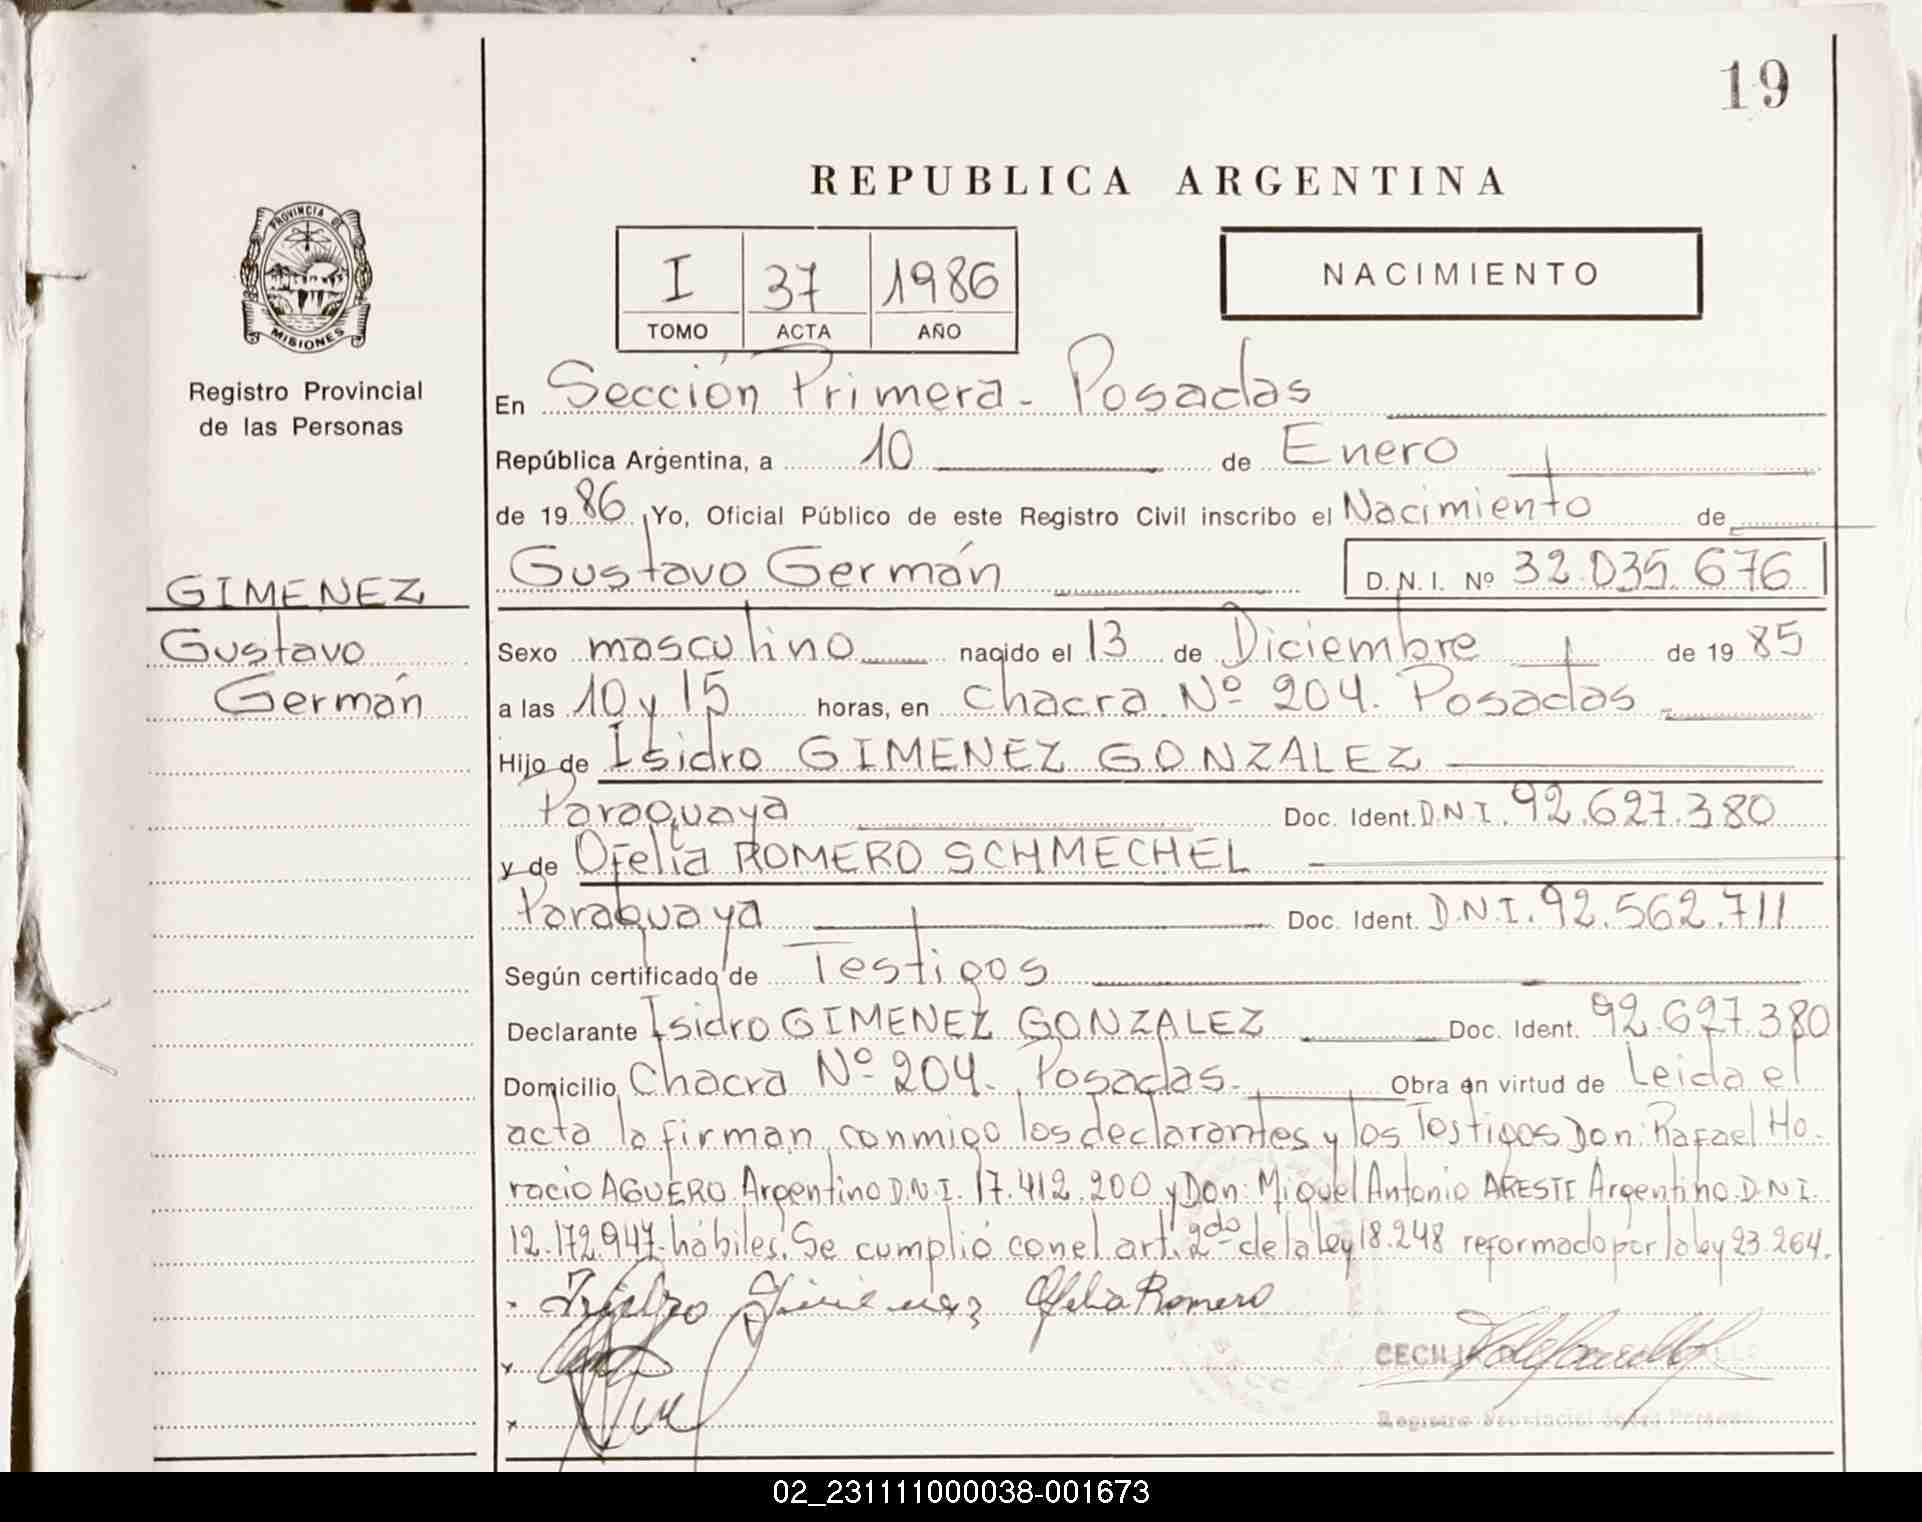 19
REPUBLICA ARGENTINA
PROVINCIA DE
MISIONES
Registro Provincial
de las Personas
I 37 1986
TOMO ACTA AÑO
NACIMIENTO
En Sección Primera - Posadas
República Argentina, a 10 de Enero
de 19 86 Yo, Oficial Público de este Registro Civil inscribo el Nacimiento de
Gustavo Germán D.N.I. Nº 32.035.676
GIMENEZ
Gustavo
Germán
Sexo masculino nacido el 13 de Diciembre de 19 85
a las 10 y 15 horas, en Chacra Nº 204. Posadas
Hijo de Isidro GIMENEZ GONZALEZ
Paraguaya Doc. Ident. D.N.I. 92.627.380
y de Ofelia ROMERO SCHMECHEL
Paraguaya Doc. Ident. D.N.I. 92.562.711
Según certificado de Testigos
Declarante Isidro GIMENEZ GONZALEZ Doc. Ident. 92.627.380
Domicilio Chacra Nº 204. Posadas. Obra en virtud de Leida el
acta la firman conmigo los declarantes y los Testigos Don: Rafael Ho-
racio AGUERO Argentino D.N.I. 17.412.200 y Don: Miguel Antonio ARESTE Argentino D.N.I.
12.172.947. hábiles. Se cumplió con el art. 2do de la ley 18.248 reformado por la ley 23.264.
Isidro Gimenez Ofelia Romero
Registro Provincial
02_231111000038-001673